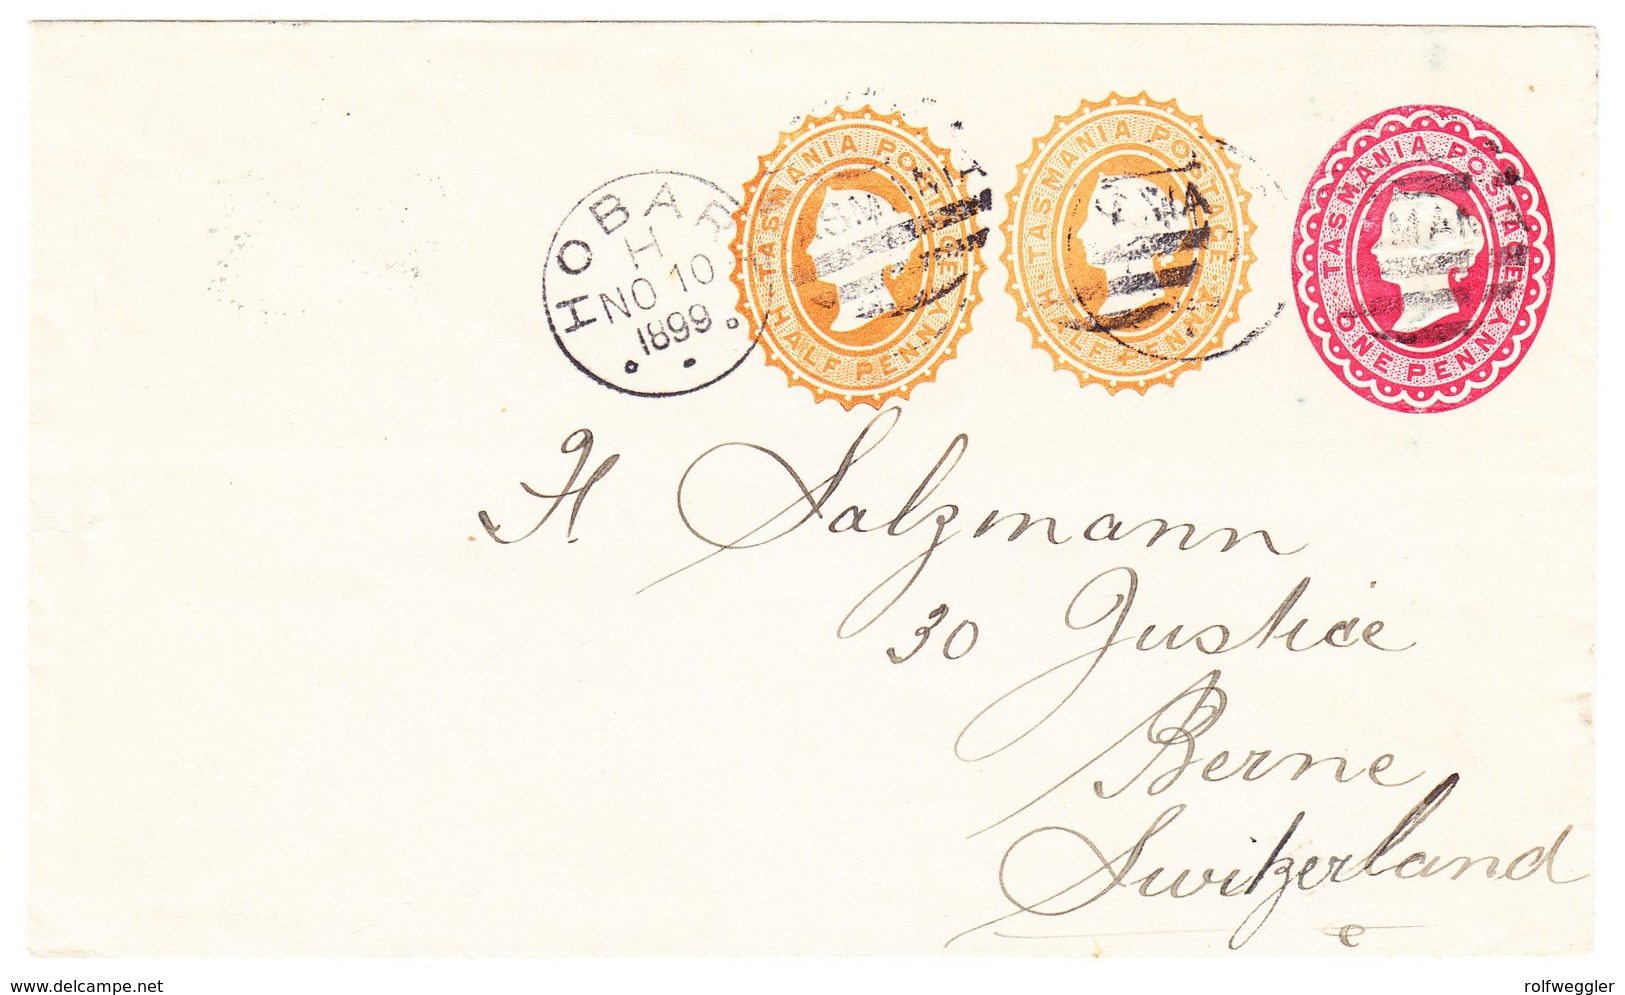 TASMANIA POSTAGE HALF PENNY
TASMANIA POSTAGE HALF PENNY
TASMANIA POSTAGE ONE PENNY
HOBAR
H
NO 10
1899
H Salzmann
30 Justice
Berne
Switzerland
www.delcampe.net
rolfweggler